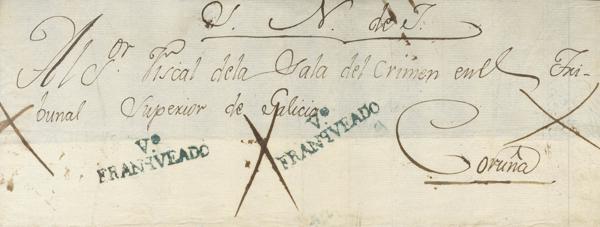 S. N. de J.
Al Sor. Fiscal dela Sala del Crimen en el Tri-
bunal Superior de Galicia
Vo
FRANQUEADO
Vo
FRANQUEADO
Coruña